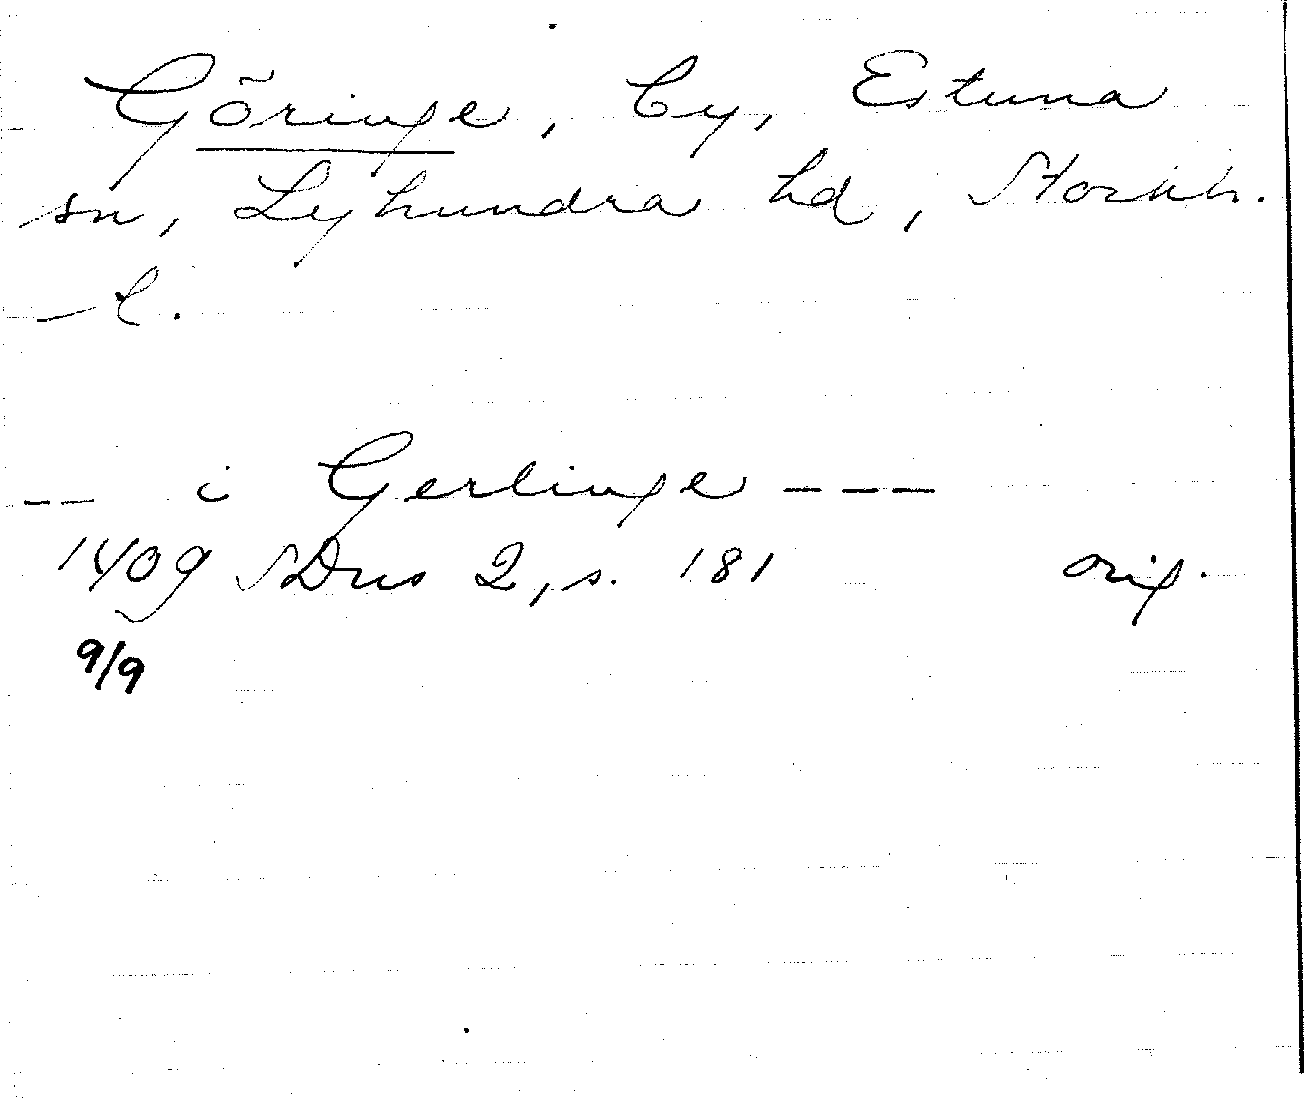 Göringe, by, Estuna
sn, Lyhundra hd, Stockh.
l.
-- i Gerlinge ---
1409 SDns 2, s. 181 orig.
9/9